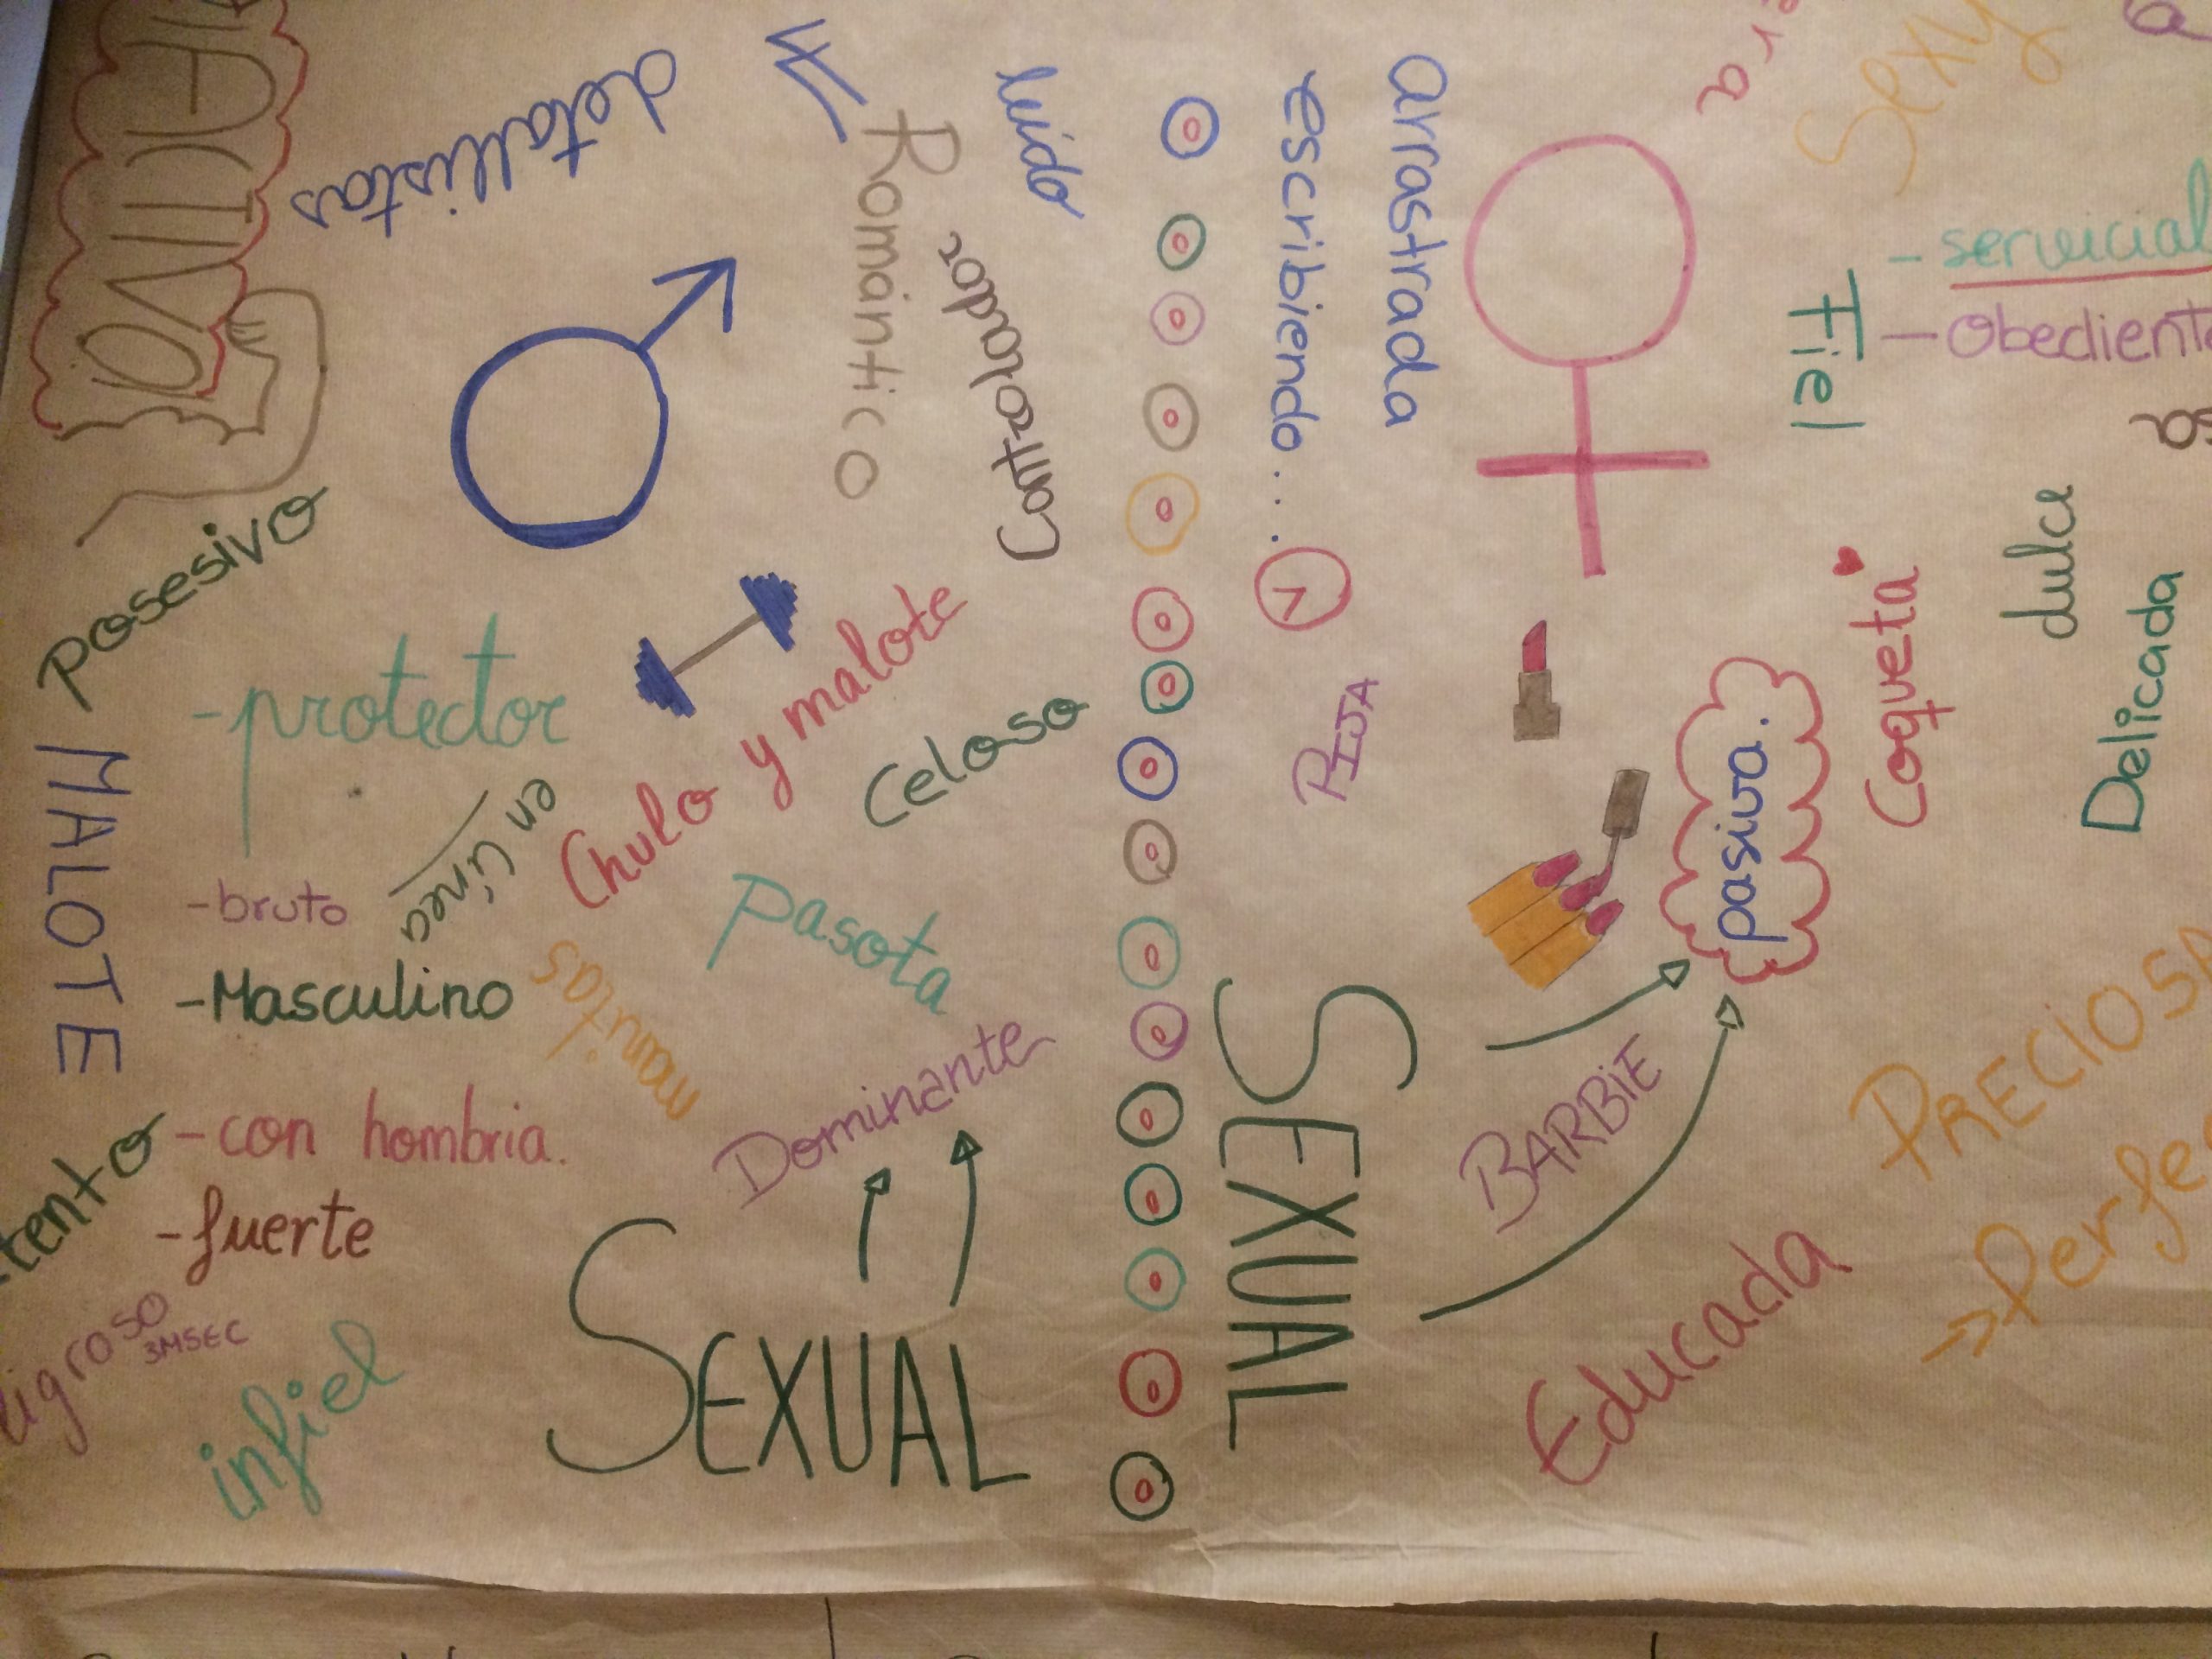 ACTIVO
detallistas
Romántico
leído
Controlador
Posesivo
-protector
MALOTE
en línea
Chulo y malote
Celoso
-bruto
-Masculino
manitas
Pasota
Dominante
-con hombria.
-fuerte
3MSEC
infiel
SEXUAL
arrastrada
escribiendo...
PIJA
SEXUAL
BARBIE
Educada
pasiva.
Coqueta
Fiel
Sexy
- servicial
- Obediente
dulce
Delicada
PRECIOSA